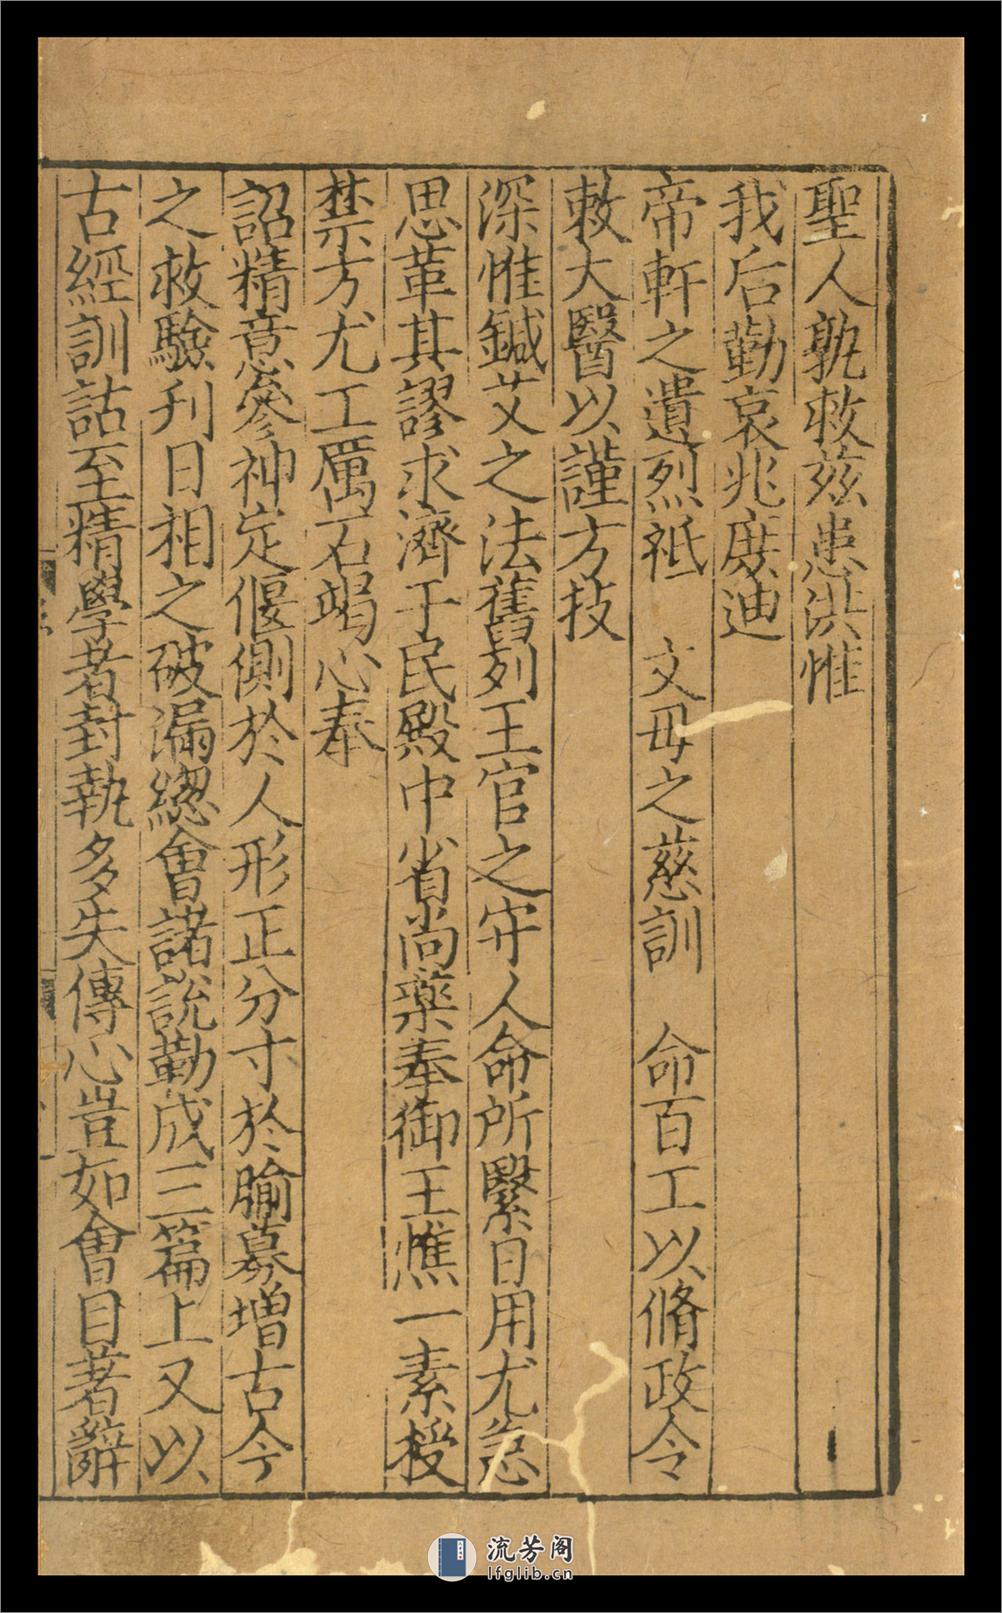 聖人孰救兹患洪惟
我后勤哀兆庶迪
帝軒之遺烈祗　文母之慈訓　命百工以脩政令
敕大醫以謹方技
深惟鍼艾之法舊列王官之守人命所繫日用尤急
思革其謬求濟于民殿中省尚藥奉御王惟一素授
禁方尤工厲石竭心奉
詔精意參神定偃側於人形正分寸於腧募增古今
之救驗刋日相之破漏緫會諸說勒成三篇上又以
古經訓詁至精學者封執多失傳心豈如會目著辭
流芳阁
lfglib.cn